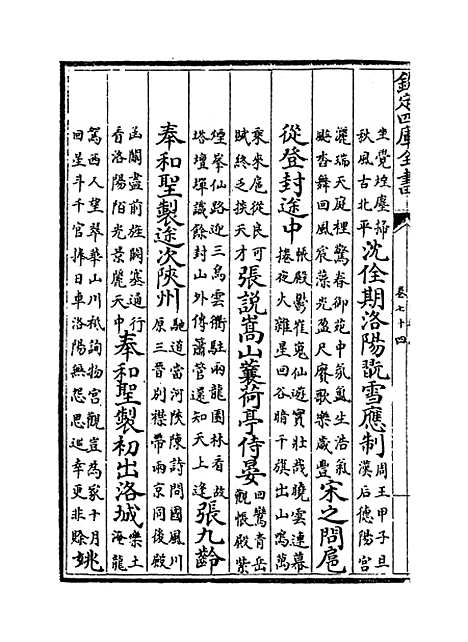 欽定四庫全書
卷七十四
坐覺煙塵掃
秋風古北平
沈佺期洛陽翫雪應制
周王甲子旦
漢后德陽宮
灑瑞天庭裡驚春御苑中氛氲生浩氣
颯沓舞回風宸藻光盈尺賡歌樂歲豐
宋之問扈
從登封途中
帳殿鬱崔嵬仙遊實壯哉曉雲連幕
捲夜火雜星回谷暗千旗出山鳴萬
乘來扈從良可
賦終乏掞天才
張説嵩山蘘荷亭侍宴
回鸞青岳
觀帳殿紫
煙峯仙路迎三鳥雲衢駐兩龍園林看故
塔壇墠識餘封山外傳簫管還知天上逢
張九齡
奉和聖製途次陜州
馳道當河陜陳詩問國風川
原三晉别襟帶兩京同後殿
函關盡前旌闕塞通行
看洛陽陌光景麗天中
奉和聖製初出洛城
樂土
淹龍
駕西人望翠華山川祇詢物宫觀豈為家十月
回星斗千官捧日車洛陽無怨思巡幸更非賒
姚